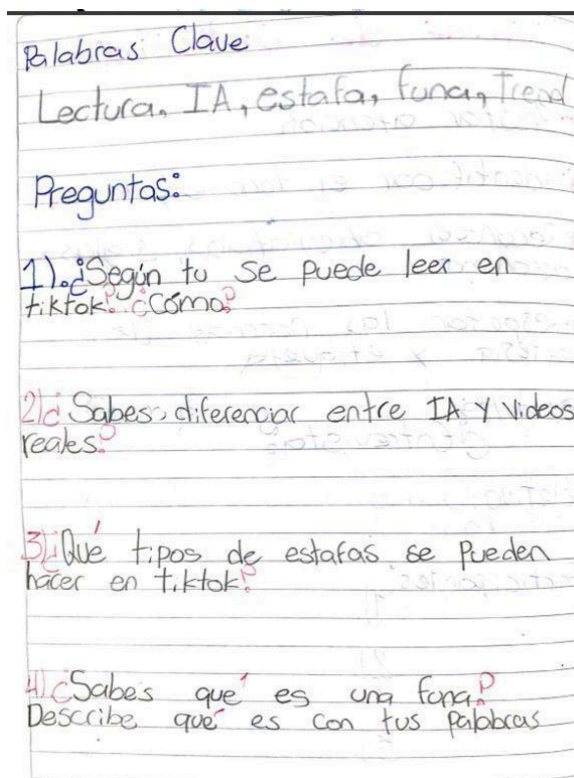 Palabras Clave
Lectura, IA, estafa, funa, Trend
Preguntas:
1). ¿Según tu se puede leer en
tiktok? ¿Cómo?
2) ¿Sabes diferenciar entre IA y videos
reales?
3) ¿Qué tipos de estafas se pueden
hacer en tiktok?
4) ¿Sabes qué es una funa?
Describe qué es con tus palabras